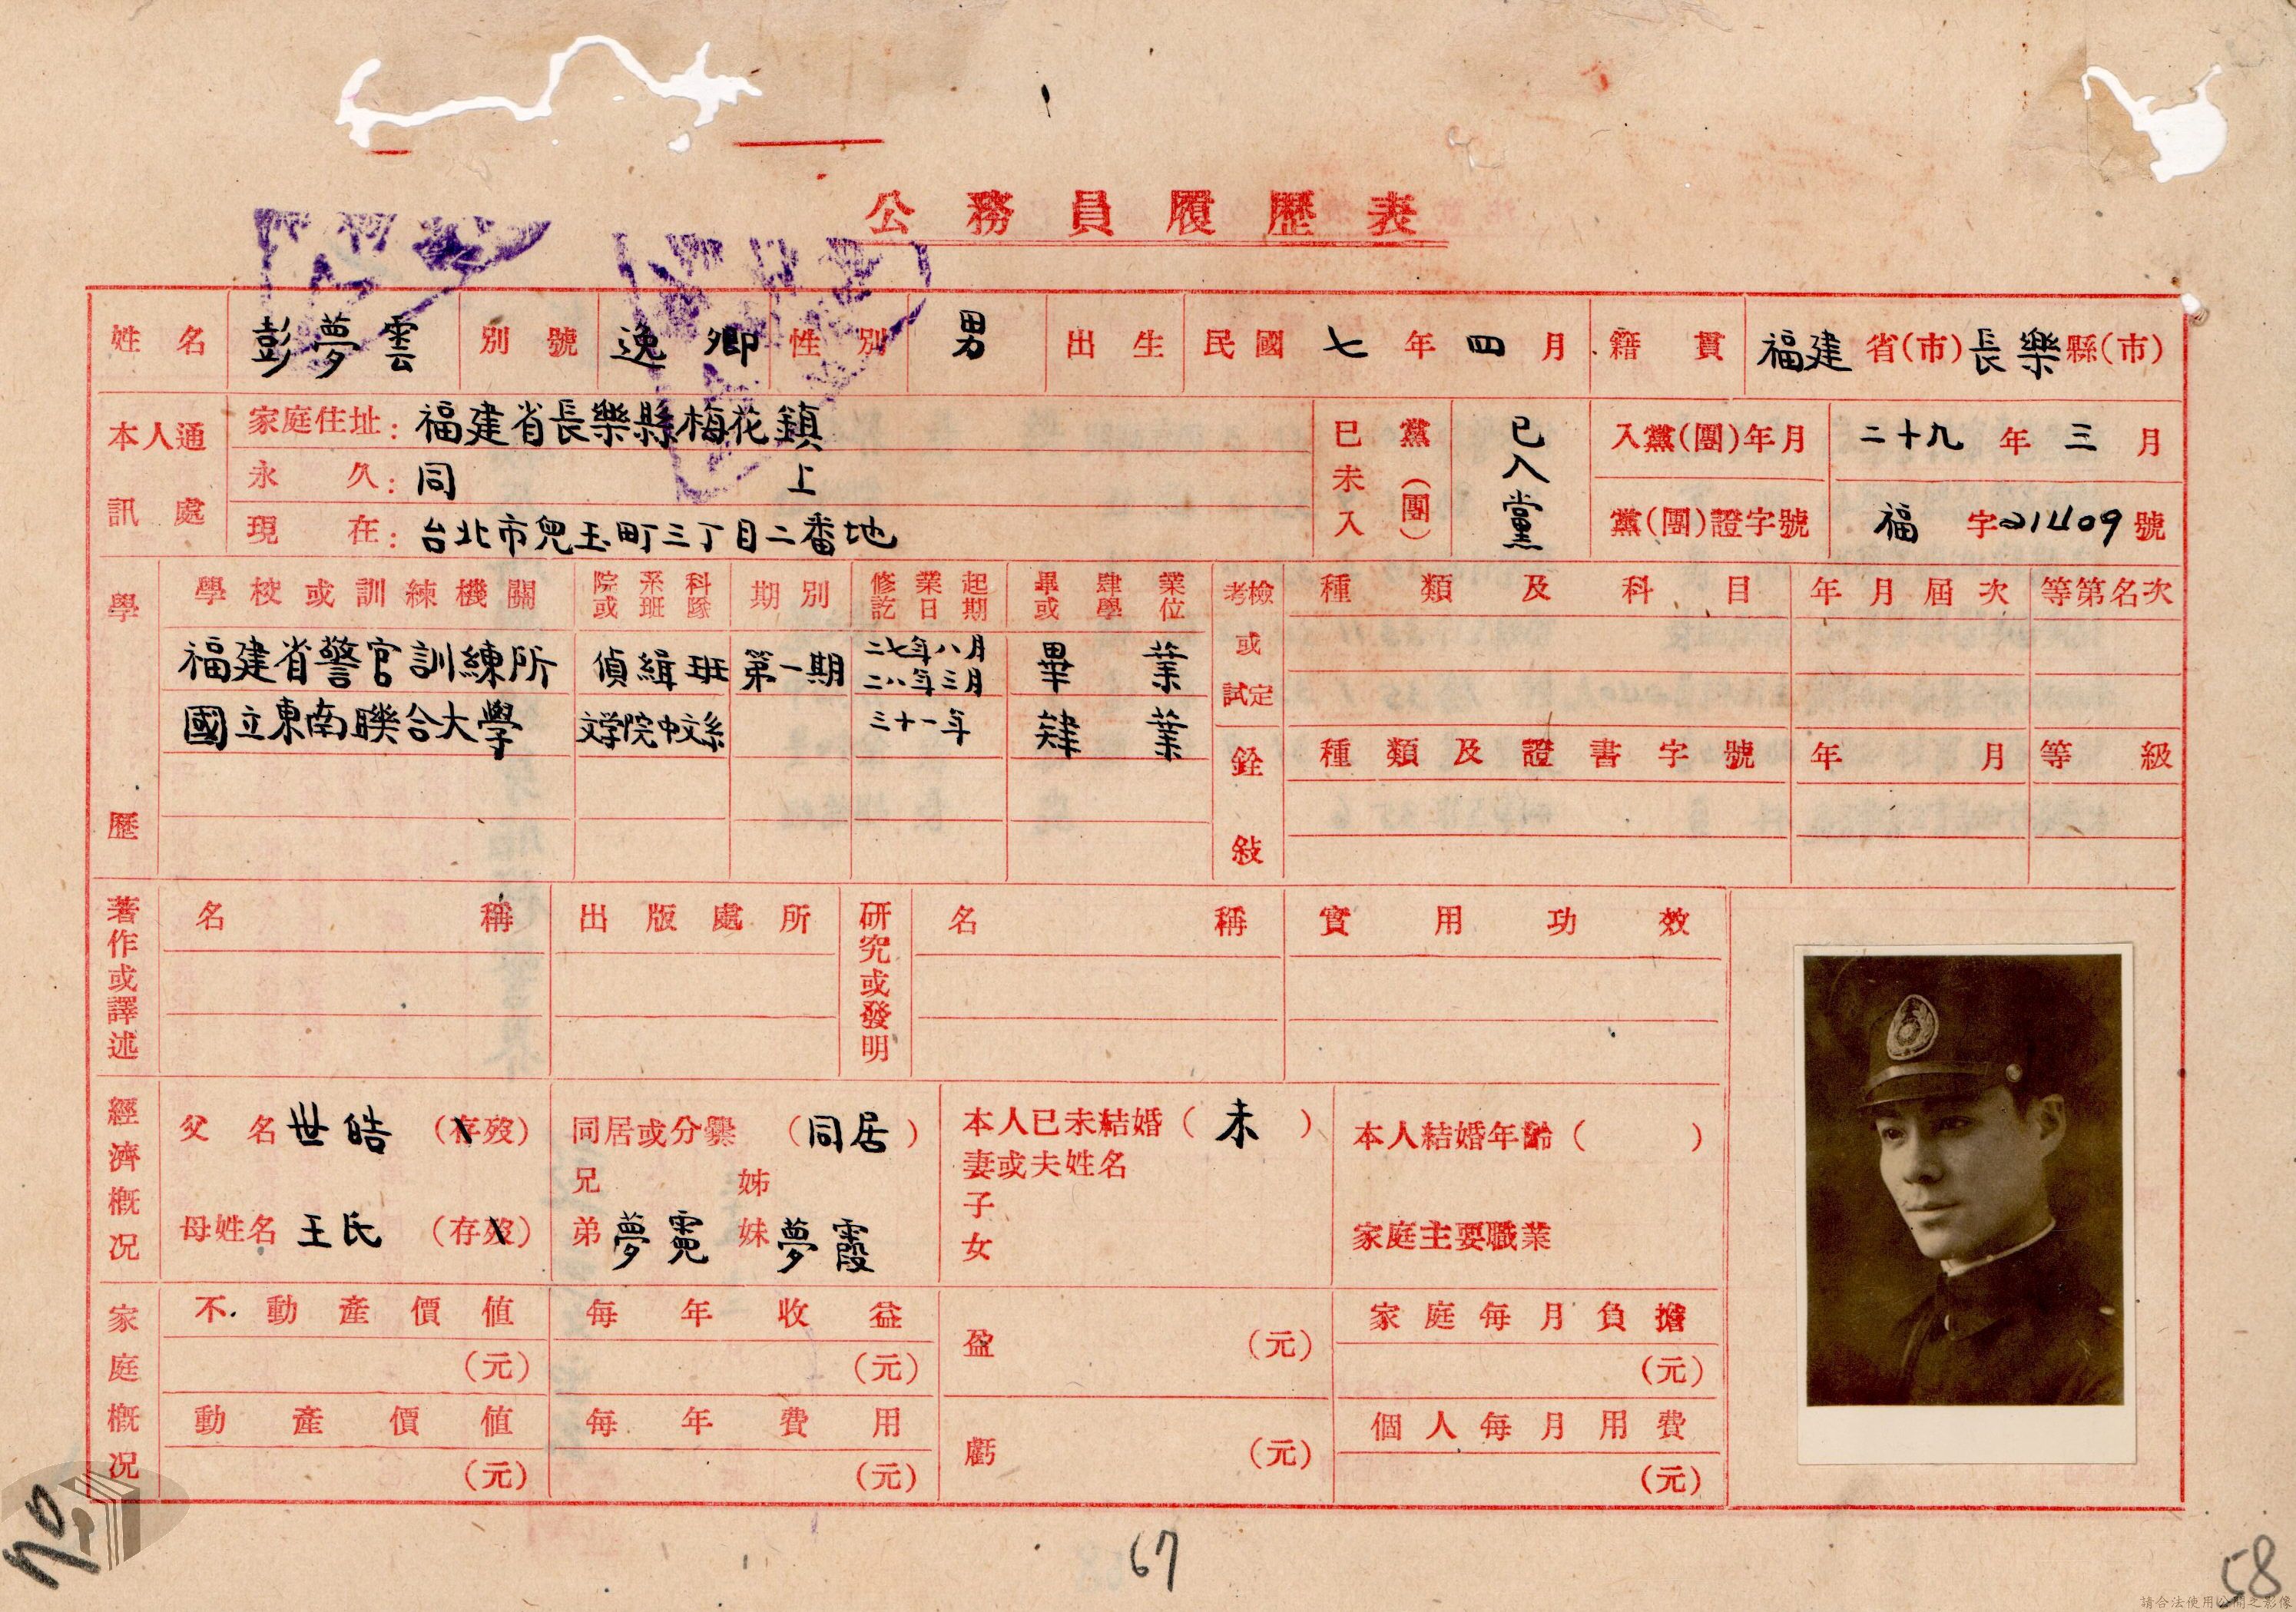 公務員履歷表
姓名 彭夢雲 別號 逸卿 性別 男 出生 民國 七 年 四 月 籍貫 福建 省(市) 長樂 縣(市)
本人通訊處
家庭住址: 福建省長樂縣梅花鎮
永久: 同上
現在: 台北市兒玉町三丁目二番地
已未入黨(團) 已入黨
入黨(團)年月 二十九 年 三 月
黨(團)證字號 福 字 21409 號
學歷
學校或訓練機關 院系科或班隊 期別 修業起訖日期 畢肄業或學位
福建省警官訓練所 偵緝班 第一期 二七年八月 二八年三月 畢業
國立東南聯合大學 文学院中文系 三十一年 肄業
考檢或試定 種類及科目 年月屆次 等第名次
銓敍 種類及證書字號 年月 等級
著作或譯述 名稱 出版處所
研究或發明 名稱 實用功效
經濟概況
父名 世皓 (存歿)
母姓名 王氏 (存歿)
同居或分爨 (同居)
兄 姊
弟 夢霓 妹 夢霞
本人已未結婚 (未)
妻或夫姓名
子
女
本人結婚年齡( )
家庭主要職業
家庭概況
不動產價值 每年收益 盈 (元) 家庭每月負擔
(元) (元) (元)
動產價值 每年費用 虧 (元) 個人每月用費
(元) (元) (元)
67
58
請合法使用公開之影像